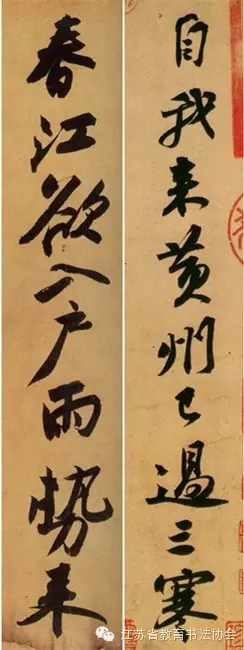 自我来黄州已過三寒
春江欲入户雨勢来
江苏省教育书法协会